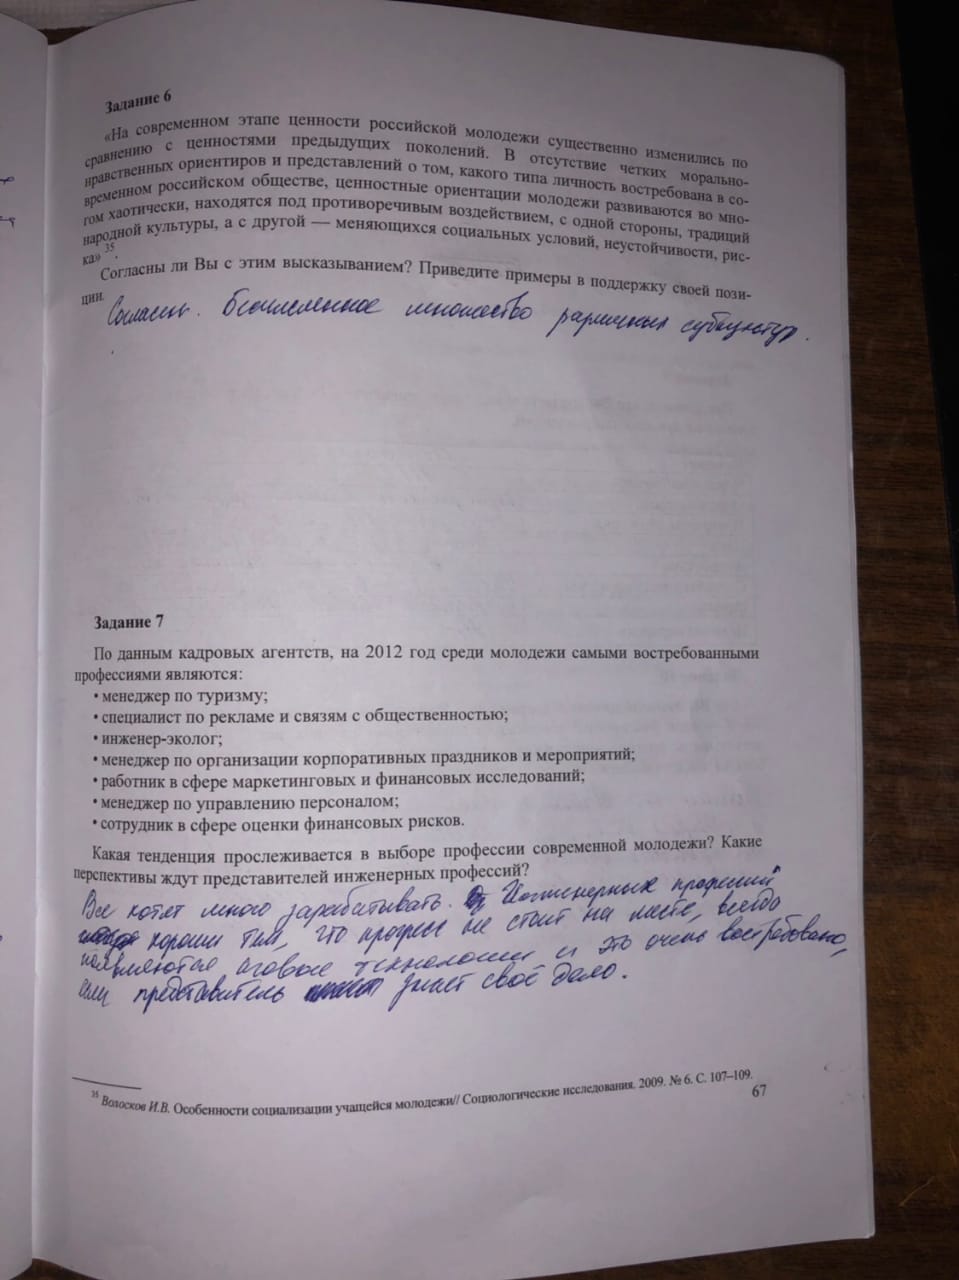 Задание 6
«На современном этапе ценности российской молодежи существенно изменились по
сравнению с ценностями предыдущих поколений. В отсутствие четких морально-
нравственных ориентиров и представлений о том, какого типа личность востребована в со-
временном российском обществе, ценностные ориентации молодежи развиваются во мно-
гом хаотически, находятся под противоречивым воздействием, с одной стороны, традиций
народной культуры, а с другой — меняющихся социальных условий, неустойчивости, рис-
ка» 35.
Согласны ли Вы с этим высказыванием? Приведите примеры в поддержку своей пози-
ции.
Согласен. Бесчисленное множество различных субкультур.
Задание 7
По данным кадровых агентств, на 2012 год среди молодежи самыми востребованными
профессиями являются:
• менеджер по туризму;
• специалист по рекламе и связям с общественностью;
• инженер-эколог;
• менеджер по организации корпоративных праздников и мероприятий;
• работник в сфере маркетинговых и финансовых исследований;
• менеджер по управлению персоналом;
• сотрудник в сфере оценки финансовых рисков.
Какая тенденция прослеживается в выборе профессии современной молодежи? Какие
перспективы ждут представителей инженерных профессий?
Все хотят много зарабатывать. Инженерных профессий
хороши тем, что прогресс не стоит на месте, всегда
появляются новые технологии и это очень востребовано,
если представитель знает своё дело.
35 Волосков И.В. Особенности социализации учащейся молодежи// Социологические исследования. 2009. № 6. С. 107–109.
67